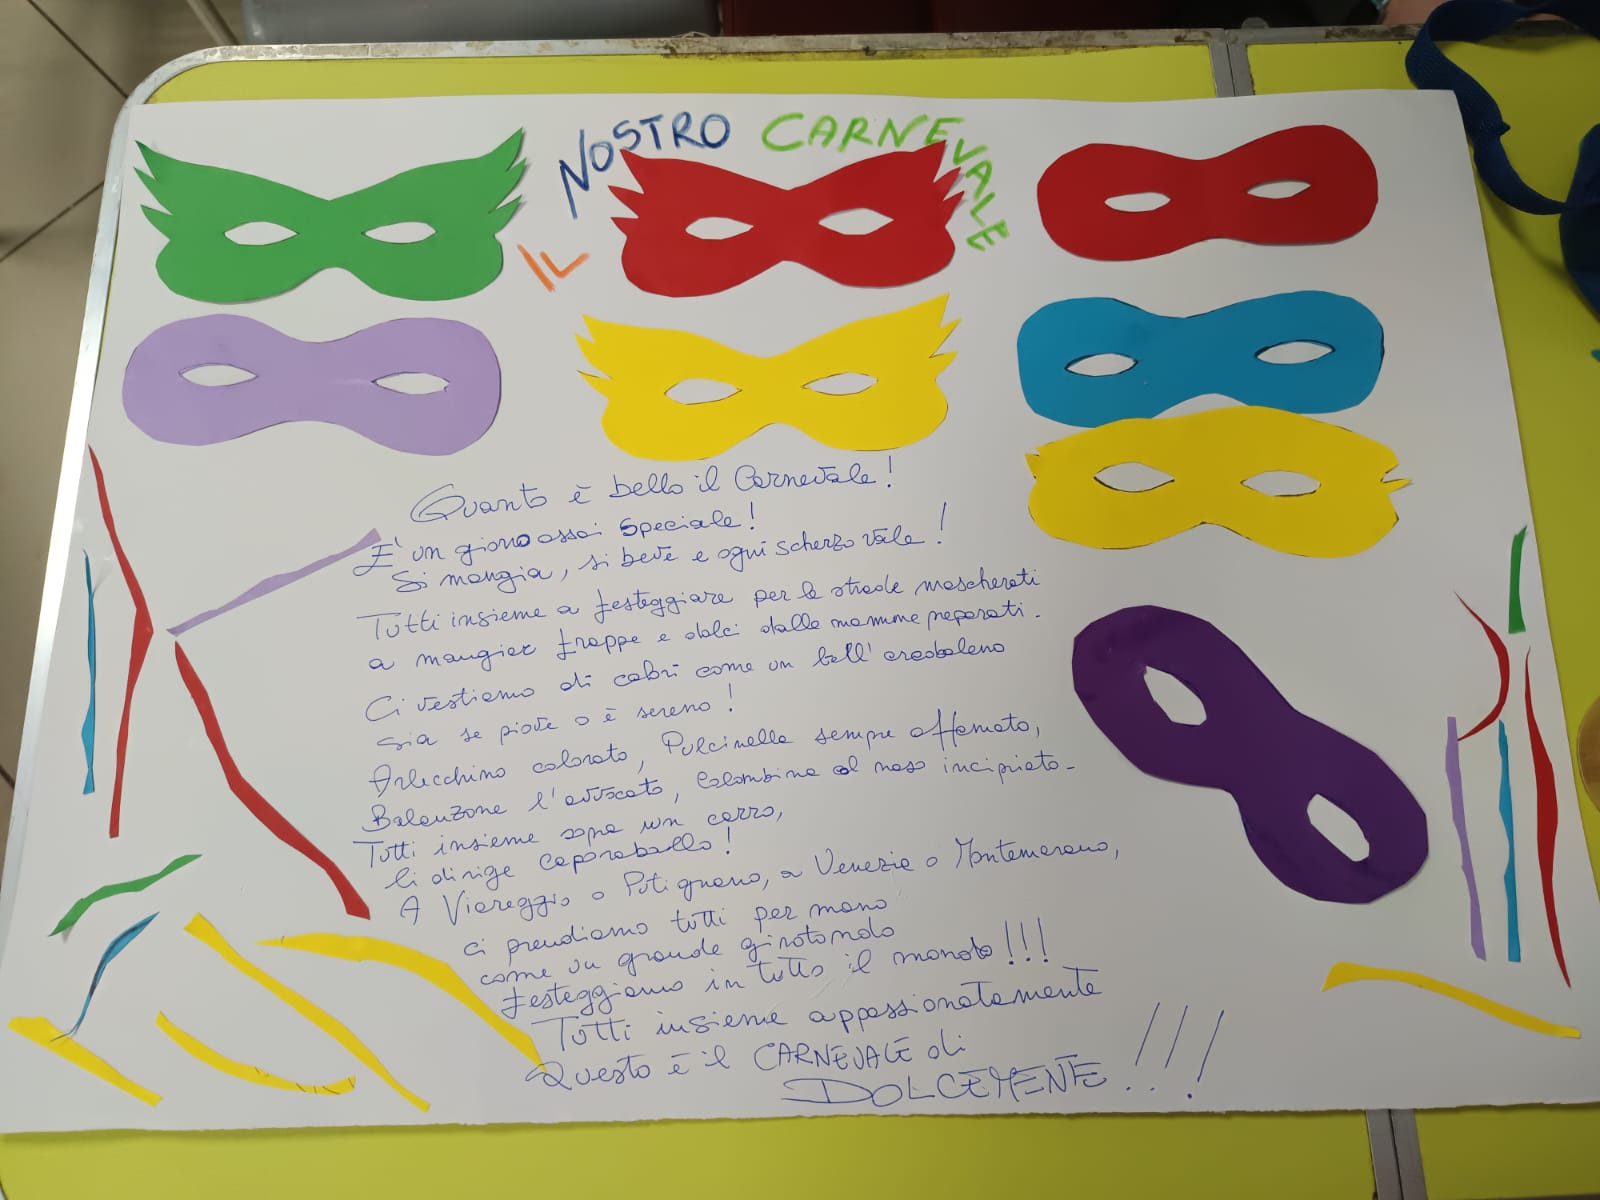 IL NOSTRO CARNEVALE
Quanto è bello il Carnevale!
E' un giorno assai speciale!
Si mangia, si beve e ogni scherzo vale!
Tutti insieme a festeggiare per le strade mascherati
a mangiar frappe e dolci dalle mamme preparati.
Ci vestiamo di colori come un bell' arcobaleno
sia se piove o è sereno!
Arlecchino colorato, Pulcinella sempre affamato,
Balanzone l'avvocato, Colombina al naso incipriato-
Tutti insieme sopra un carro,
li dirige Caporaballo!
A Viareggio o Putignano, a Venezia o Montemarano,
ci prendiamo tutti per mano
come un grande girotondo
festeggiamo in tutto il mondo!!!
Tutti insieme appassionatamente
Questo è il CARNEVALE di
DOLCEMENTE!!!